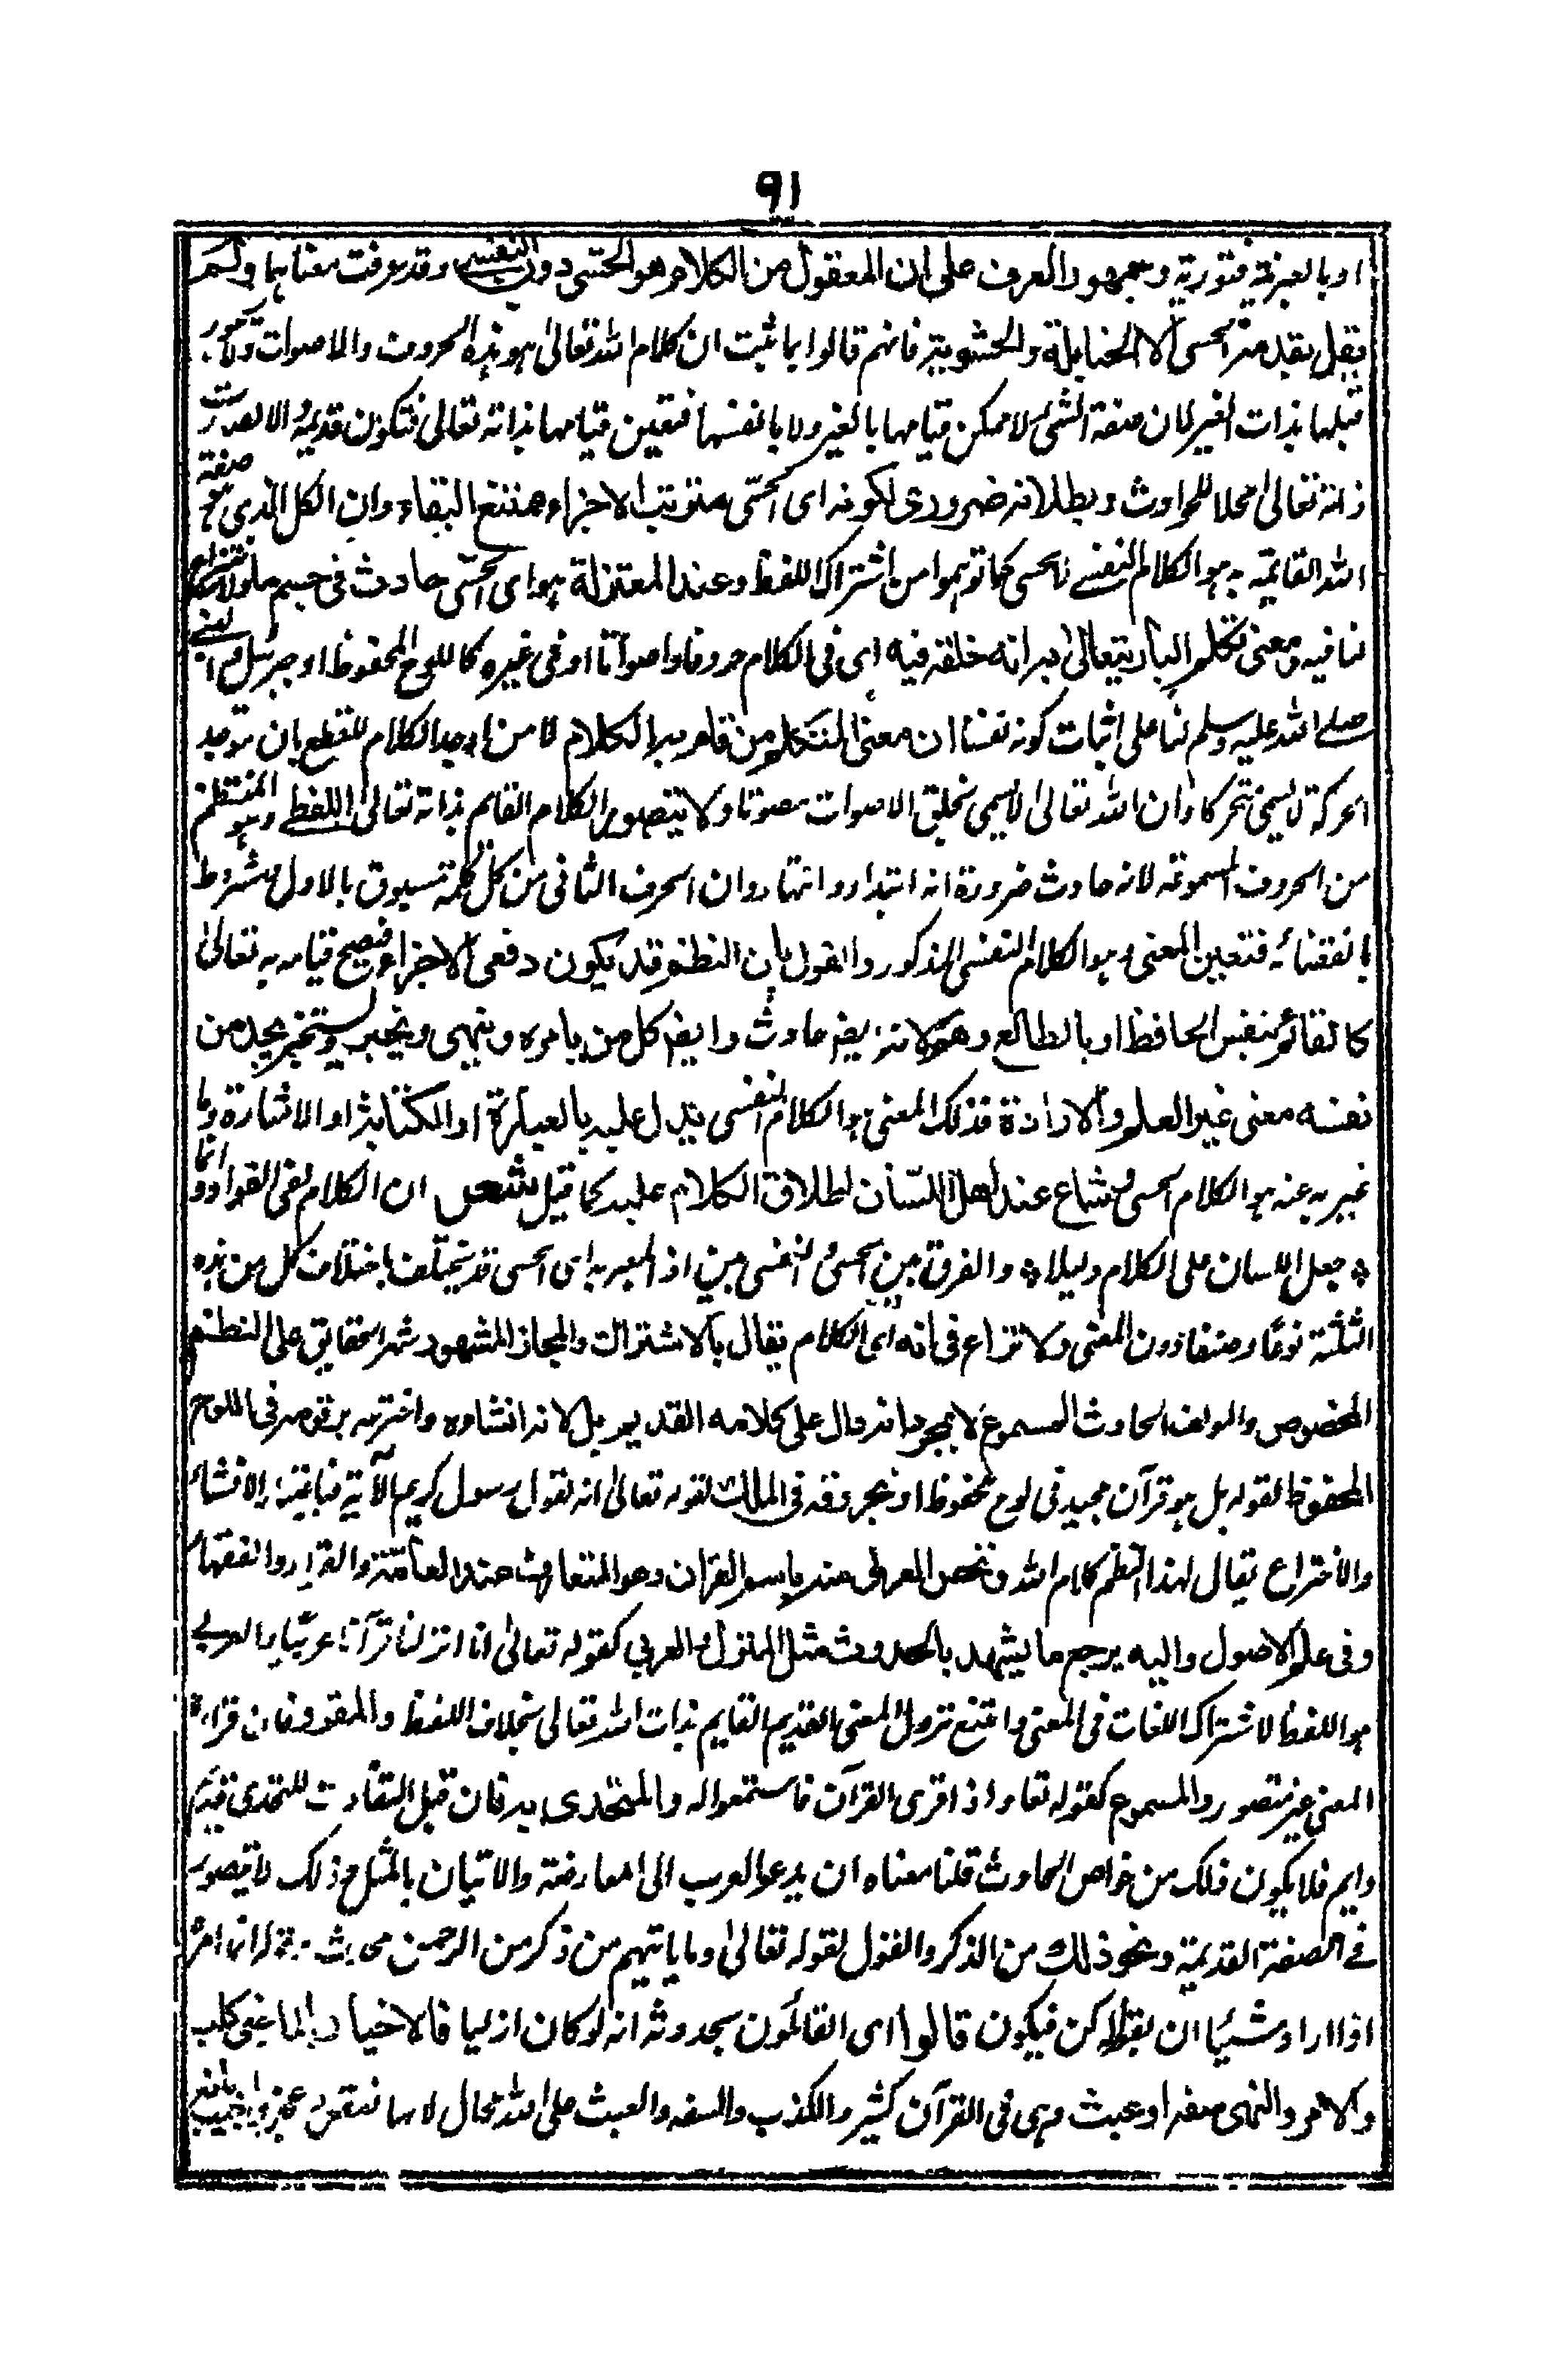 ٩١
او بالعبرية فتورية وجمهور العرف على ان المعقول من الكلام هو الحسّى دون النفسى وقد عرفت معناهما ولم
يقل بقدم الحسى الا الحنابلة والحشوية فانهم قالوا بما ثبت ان كلام الله تعالىٰ هو هذه الحروف والاصوات ولا يجوز
قيامها بذات الغير لان صفة الشئ لا ممكن قيامها بالغير ولا بانفسها فتعين قيامها بذاته تعالى فتكون قديمة والا لصارت
ذاته تعالىٰ محلا للحوادث وبطلانه ضرورى لكونه اى الحسّى مترتب الاجزاء ممتنع البقاء وان الكل الذى هو صفة
الله القائمة به هو الكلام النفسى لا الحسى كما توهموا من اشتراك اللفظ وعند المعتزلة هو اى الحسّى حادث فى جسم
لنا فيه ومعنى تكلم البارى تعالىٰ به انه خلقه فيه اى فى الكلام حروفا واصواتا او فى غيره كاللوح المحفوظ او جبرئيل او النبى
صلى الله عليه وسلم لنا على اثبات كونه نفسيا ان معنى المتكلم من قام به الكلام لا من اوجد الكلام للقطع بان موجد
الحركة لا يسمى متحركا وان الله تعالىٰ لا يسمى بخلق الاصوات مصوتا ولا يتصور الكلام القائم بذاته تعالىٰ اللفظى وهو المنتظم
من الحروف المسموعة لانه حادث ضرورة انه ابتداء وانتهاء وان الحرف الثانى من كل كلمة مسبوق بالاول مشروط
بانقضائه فتعين المعنى وهو الكلام النفسى المذكور والقول بان النظم قد يكون دفعى الاجزاء فيصح قيامه به تعالىٰ
كالقائم بنفس الحافظ او بالطابع وهو لانه ايضا حادث وايضا كل من يامر وينهى ويخبر ويستخبر يجد من
نفسه معنى غير العلم والارادة فذلك المعنى هو الكلام النفسى يدل عليه بالعبارة او الكتابة او الاشارة وما
عبر به عنه هو الكلام الحسى وشاع عند اهل اللسان اطلاق الكلام عليه كما قيل شعر ان الكلام لفى الفواد وانما
جعل اللسان على الكلام دليلا والفرق بين الحسى والنفسى بين اذ المعبر به اى الحسى قد يختلف باختلاف كل من هذه
الثلثة نوعا وصنفا دون المعنى ولا نزاع فى انه اى الكلام يقال بالاشتراك والمجاز المشهور شهرة الحقايق على النظم
المخصوص والمولف الحادث المسموع لا بمجرد انه دال على كلامه القديم بل لانه انشاه واخترعه برقومه فى اللوح
المحفوظ لقوله بل هو قرآن مجيد فى لوح محفوظ او بحروفه فى الملك لقوله تعالىٰ انه لقول رسول كريم الآية فباقية الانشاء
والاختراع يقال لهذا النظم كلام الله وتخص العربى منه باسم القران وهو المتعارف عند العامّة والقراء والفقهاء
وفى علم الاصول واليه يرجع ما يشهد بالحدوث مثل المنزل والعربى كقوله تعالىٰ انا انزلناه قرآنا عربيّا والعربى
هو اللفظ لاشتراك اللغات فى المعنى وامتنع نزول المعنى القديم القايم بذات الله تعالىٰ بخلاف اللفظ والمقرو فان قراءة
المعنى غير متصور والمسموع كقوله تعا واذا قرى القرآن فاستمعوا له والمتحدى به فان قيل التفاوت للتحدى قديم
دايم فلا يكون ذلك من خواص الحادث قلنا معناه ان يدعو العرب الى المعارضة والاتيان بالمثل وذلك لا يتصور
فى الصفة القديمة ونحو ذلك من الذكر والقول لقوله تعالىٰ وما ياتيهم من ذكر من الرحمن محدث وقوله انما امره
اذا اراد شيئا ان يقول له كن فيكون قالوا اى القائلون بحدوثه انه لو كان ازليا فالاخبار بالماضى كذب
والامر والنهى سفه او عبث وهى فى القرآن كثير والكذب والسفه والعبث على الله محال لانها نقص وعجز واجيب